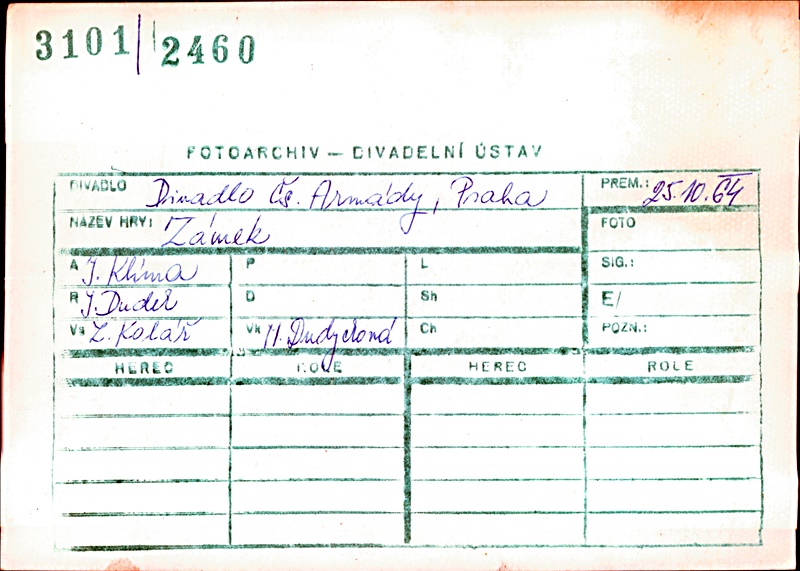 3101 | 2460
FOTOARCHIV — DIVADELNÍ ÚSTAV
DIVADLO Divadlo Čs. Armády, Praha PREM.: 25.10.64
NÁZEV HRY: Zámek FOTO
A I. Klíma P L SIG.:
R J. Dudek D Sh E/
Vs Z. Kolář Vk M. Dudychová Ch POZN.:
HEREC ROLE HEREC ROLE